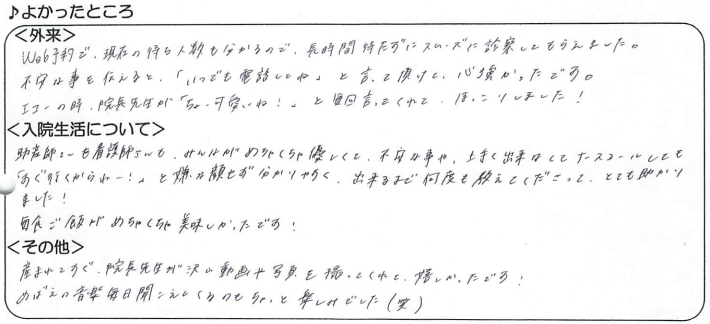 ♪よかったところ
＜外来＞
Web予約で、現在の待ち人数も分かるので、長時間待たずにスムーズに診察してもらえました。
不安な事を伝えると、「いつでも電話してね」と言って頂けて、心強かったです。
エコーの時、院長先生が「ちょー可愛いね！」と毎回言ってくれて、ほっこりしました！
＜入院生活について＞
助産師さんも看護師さんも、みんながめちゃくちゃ優しくて、不安な事や、上手く出来なくてナースコールしても
「すぐ行くからねー！」と嫌な顔せず分かりやすく、出来るまで何度も教えてくださって、とても助かり
ました！
毎食ご飯がめちゃくちゃ美味しかったです！
＜その他＞
産まれてすぐ、院長先生が沢山動画や写真を撮ってくれて、嬉しかったです！
めばえの音楽毎日聞こえてくるのもちょっと楽しみでした(笑)